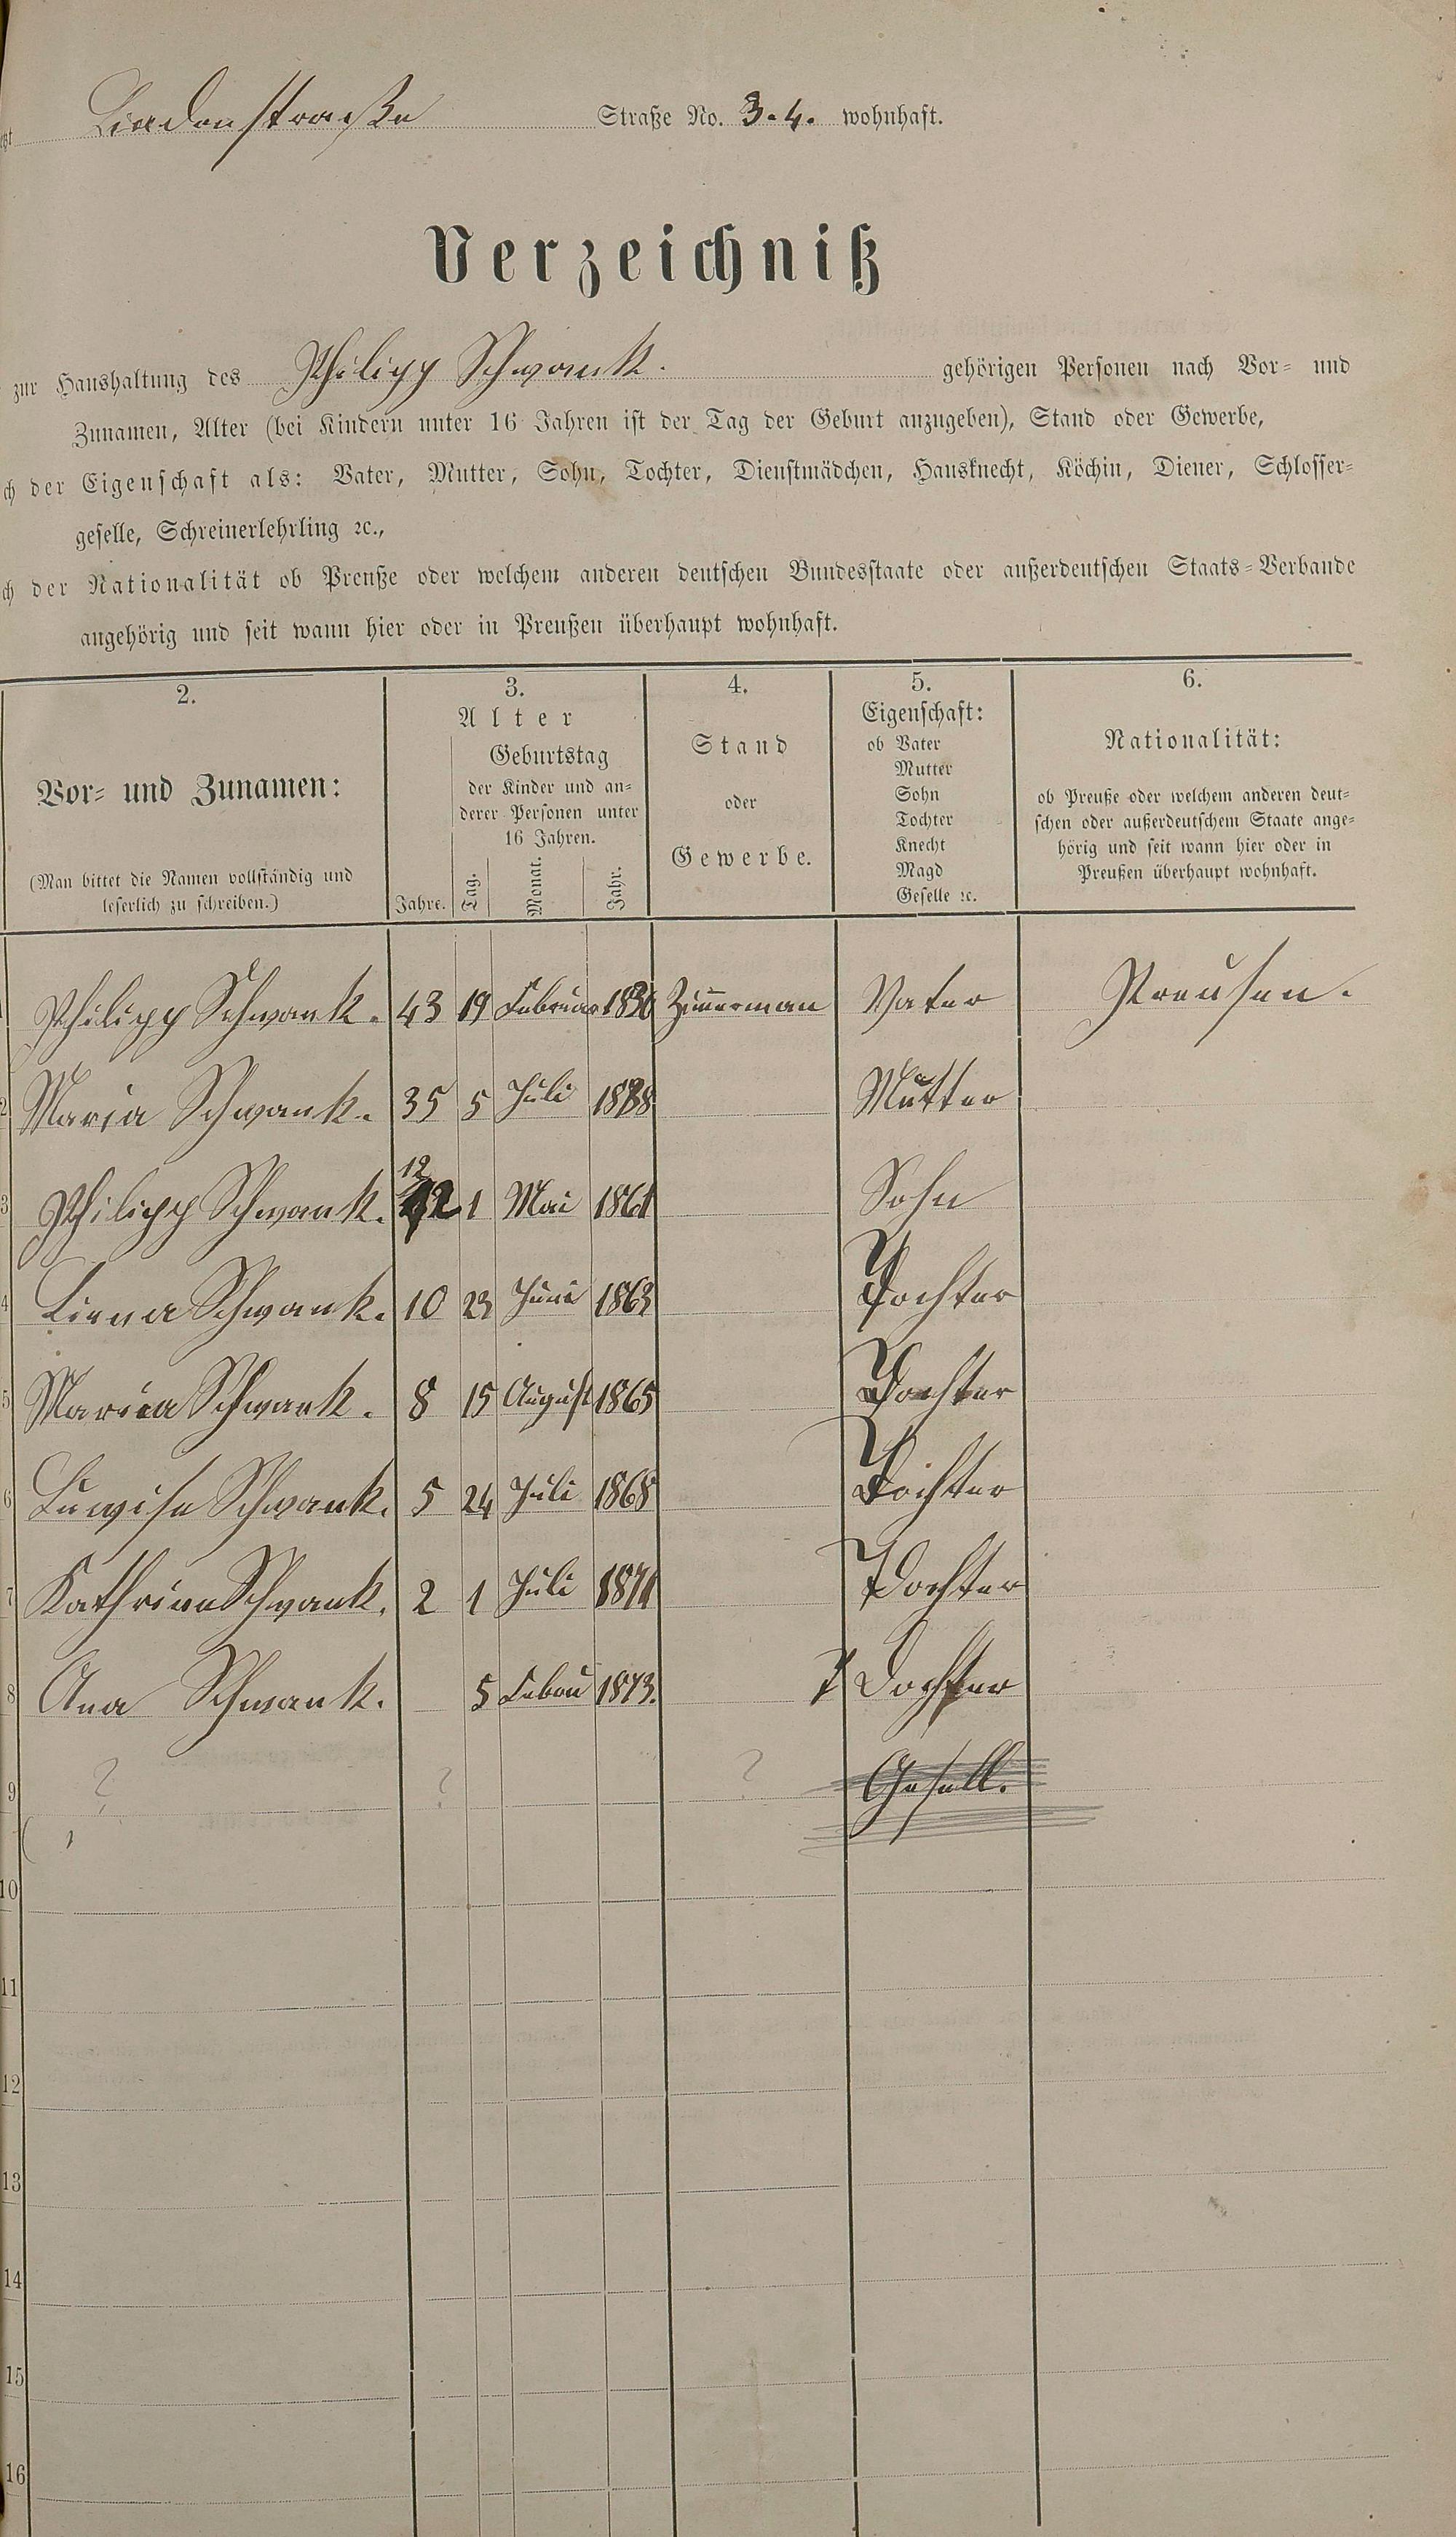 Lindenstraße Straße No. 3.4. wohnhaft.
Verzeichniß
zur Haushaltung des Philipp Schwank. gehörigen Personen nach Vor- und
Zunamen, Alter (bei Kindern unter 16 Jahren ist der Tag der Geburt anzugeben), Stand oder Gewerbe,
ch der Eigenschaft als: Vater, Mutter, Sohn, Tochter, Dienstmädchen, Hausknecht, Köchin, Diener, Schlosser-
geselle, Schreinerlehrling ꝛc.,
ch der Nationalität ob Preuße oder welchem anderen deutschen Bundesstaate oder außerdeutschen Staats-Verbande
angehörig und seit wann hier oder in Preußen überhaupt wohnhaft.
2. 3. 4. 5. 6.
Vor- und Zunamen:
(Man bittet die Namen vollständig und
leserlich zu schreiben.)
Alter
Geburtstag
der Kinder und an-
derer Personen unter
16 Jahren.
Jahre. Tag. Monat. Jahr.
Stand
oder
Gewerbe.
Eigenschaft:
ob Vater
Mutter
Sohn
Tochter
Knecht
Magd
Geselle ꝛc.
Nationalität:
ob Preuße oder welchem anderen deut-
schen oder außerdeutschem Staate ange-
hörig und seit wann hier oder in
Preußen überhaupt wohnhaft.
1 Philipp Schwank. 43 19 Februar 1830 Zim̄erman Vater Preusen.
2 Maria Schwank. 35 5 Juli 1838 Mutter
12
3 Philipp Schwank. 12 1 Mai 1861 Sohn
4 Linna Schwank. 10 23 Juni 1863 Tochter
5 Mariea Schwank. 8 15 August 1865 Tochter
6 Luwise Schwank. 5 24 Juli 1868 Tochter
7 Kathrina Schwank. 2 1 Juli 1871 Tochter
8 Ana Schwank. 5 Febru 1873. T Dochter
9 ? ? ? Gesell.
10
11
12
13
14
15
16